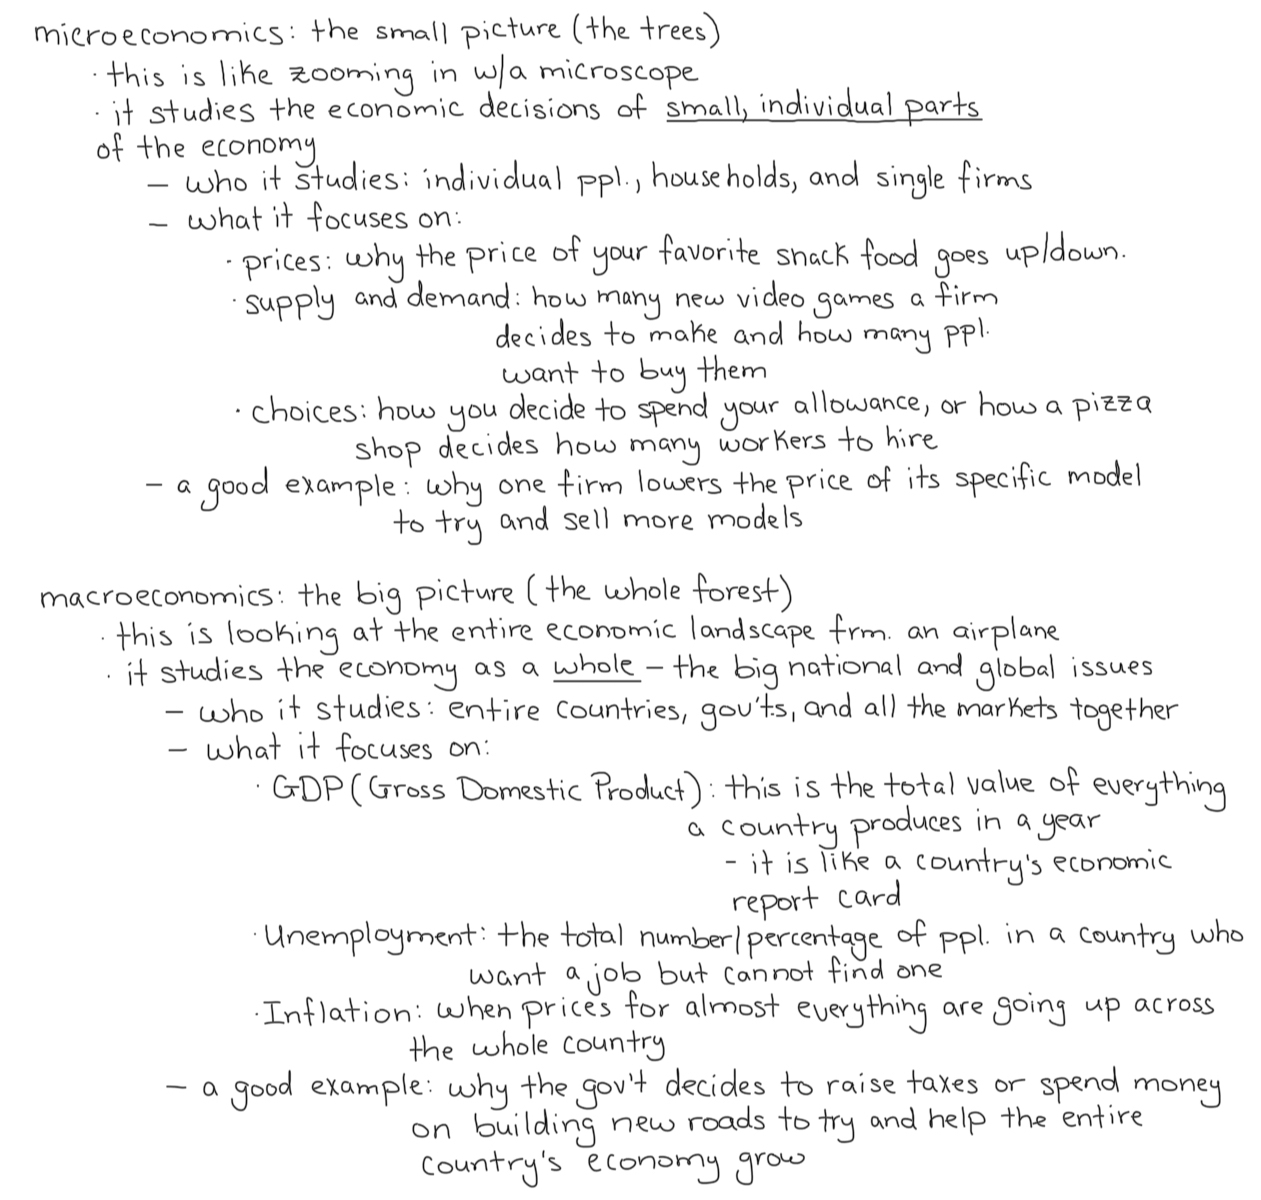 microeconomics: the small picture (the trees)
· this is like zooming in w/a microscope
· it studies the economic decisions of small, individual parts
of the economy
– who it studies: individual ppl., households, and single firms
– what it focuses on:
· prices: why the price of your favorite snack food goes up/down.
· supply and demand: how many new video games a firm
decides to make and how many ppl.
want to buy them
· choices: how you decide to spend your allowance, or how a pizza
shop decides how many workers to hire
– a good example: why one firm lowers the price of its specific model
to try and sell more models
macroeconomics: the big picture (the whole forest)
· this is looking at the entire economic landscape frm. an airplane
· it studies the economy as a whole – the big national and global issues
– who it studies: entire countries, gov't.s, and all the markets together
– what it focuses on:
· GDP (Gross Domestic Product): this is the total value of everything
a country produces in a year
- it is like a country's economic
report card
· Unemployment: the total number/percentage of ppl. in a country who
want a job but cannot find one
· Inflation: when prices for almost everything are going up across
the whole country
– a good example: why the gov't decides to raise taxes or spend money
on building new roads to try and help the entire
country's economy grow